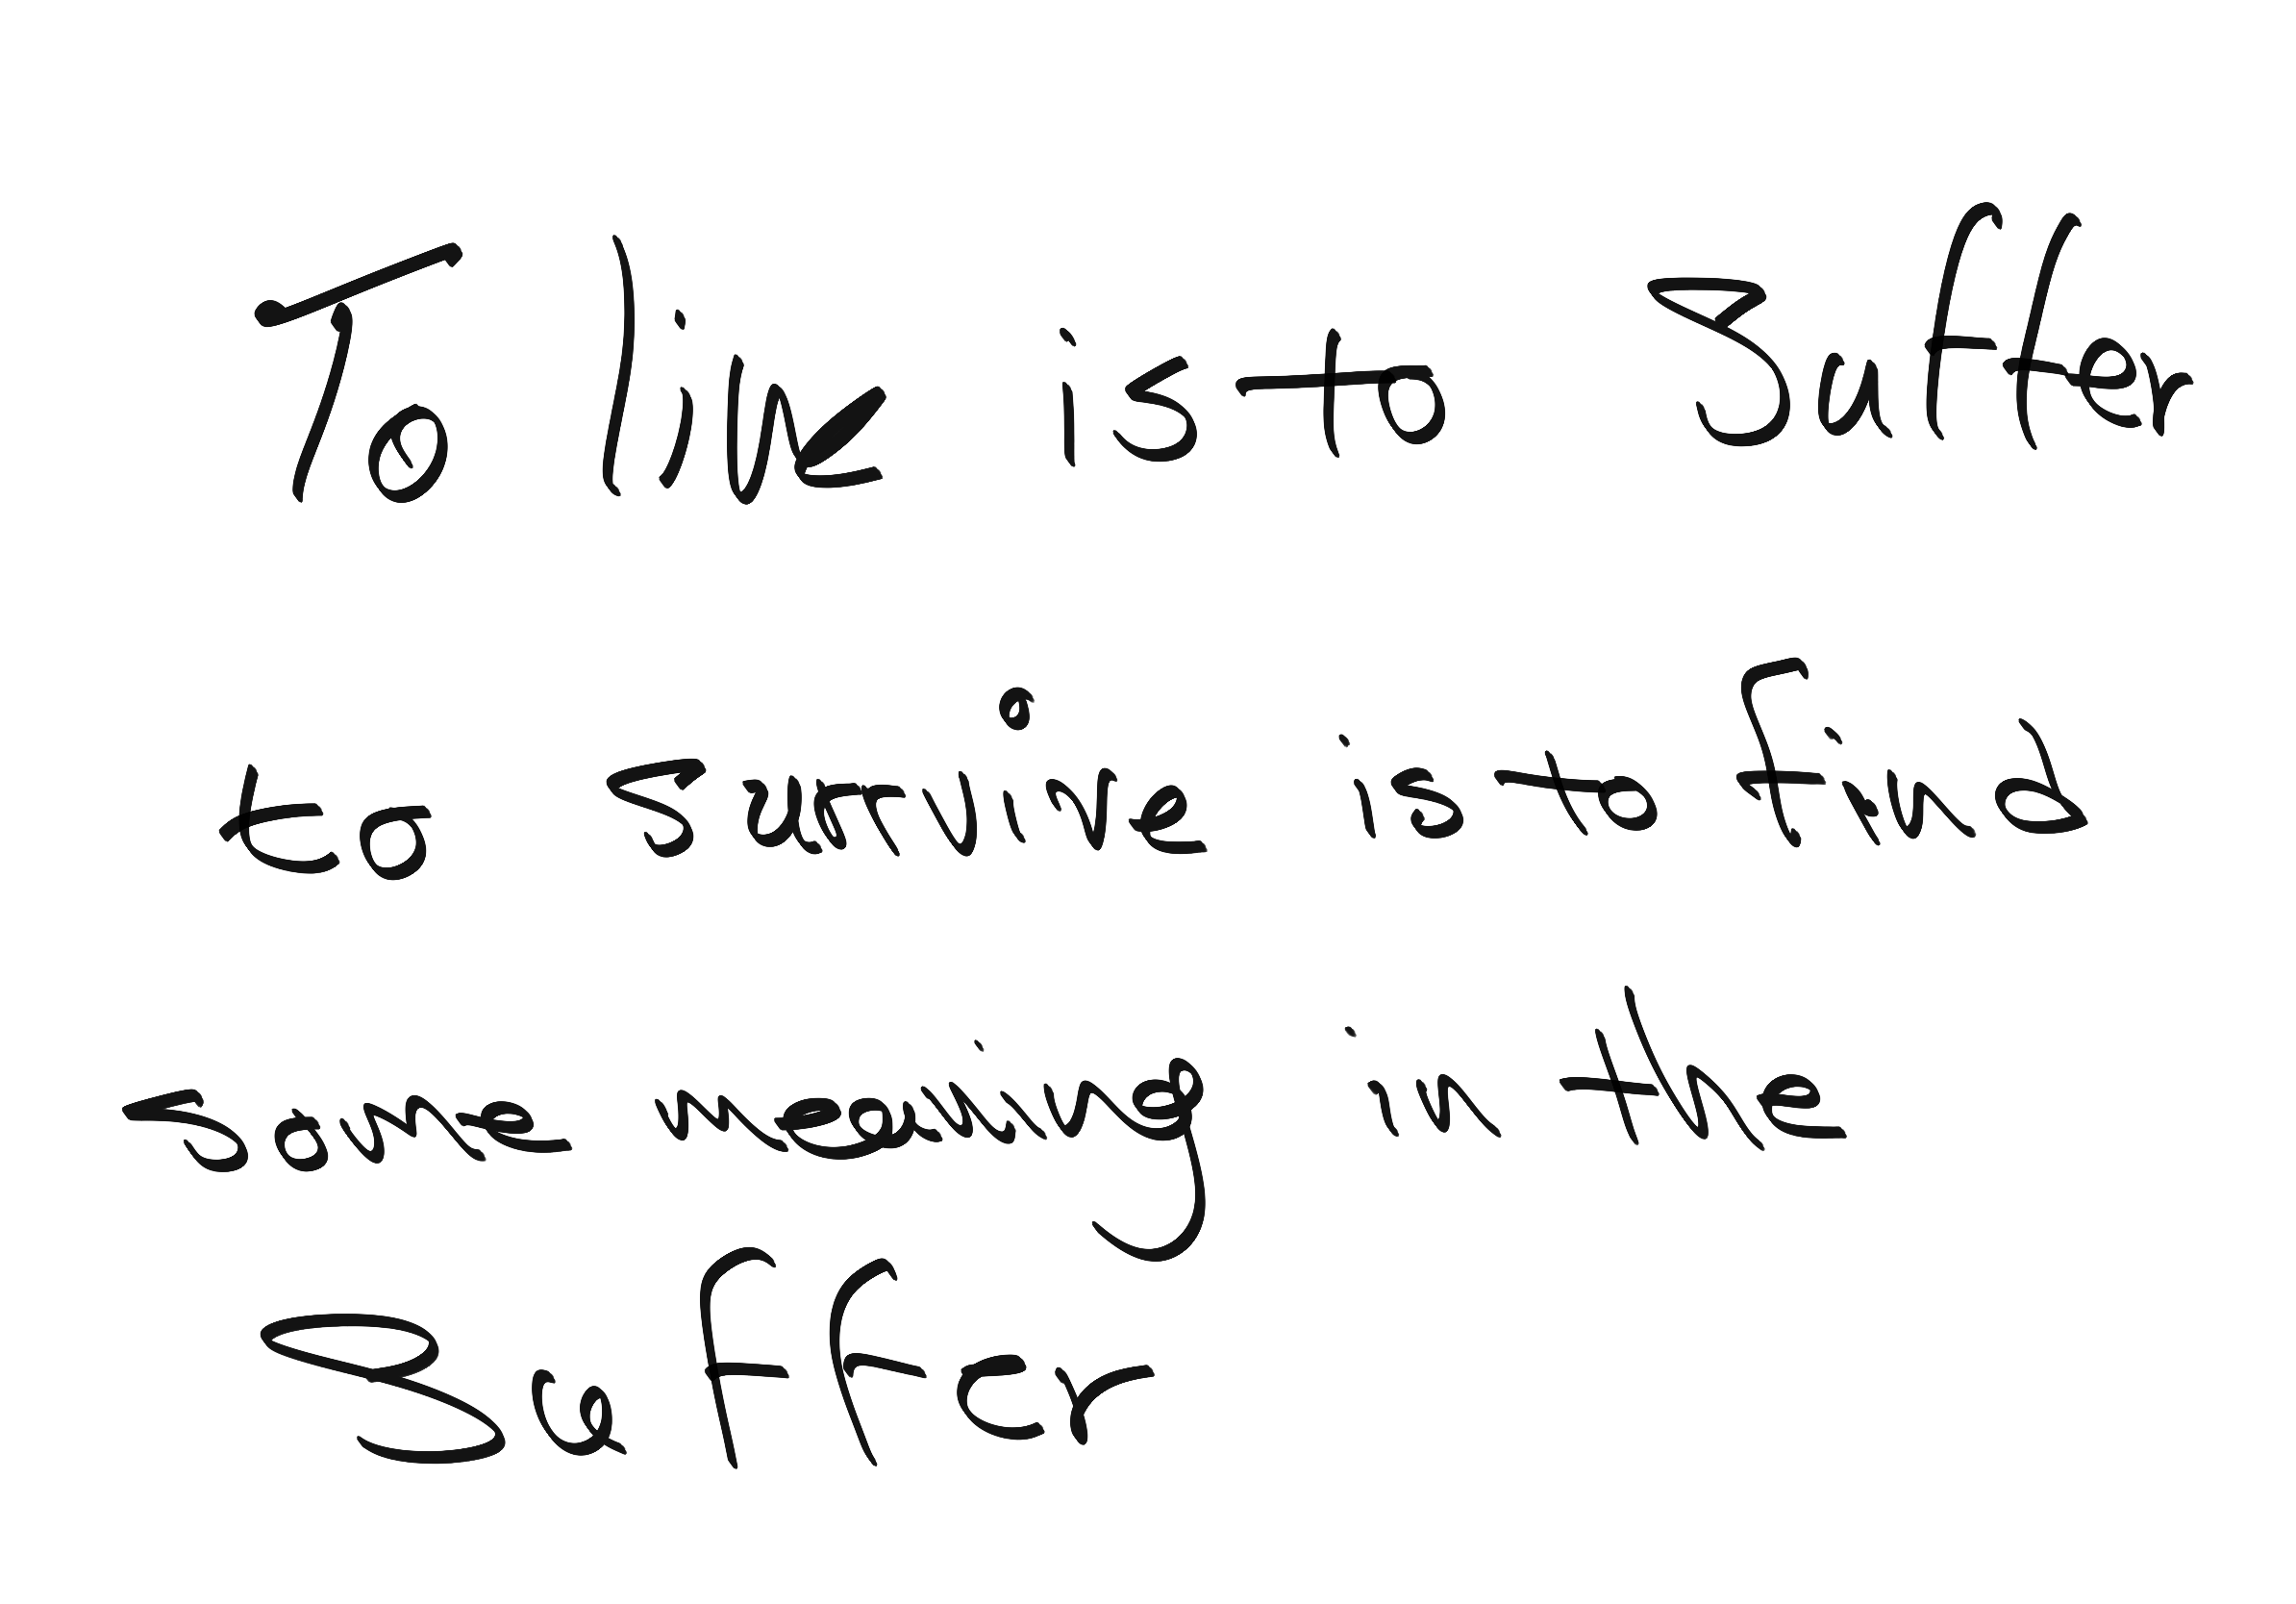 To live is to Suffer
to survive is to find
some meaning in the
Suffer